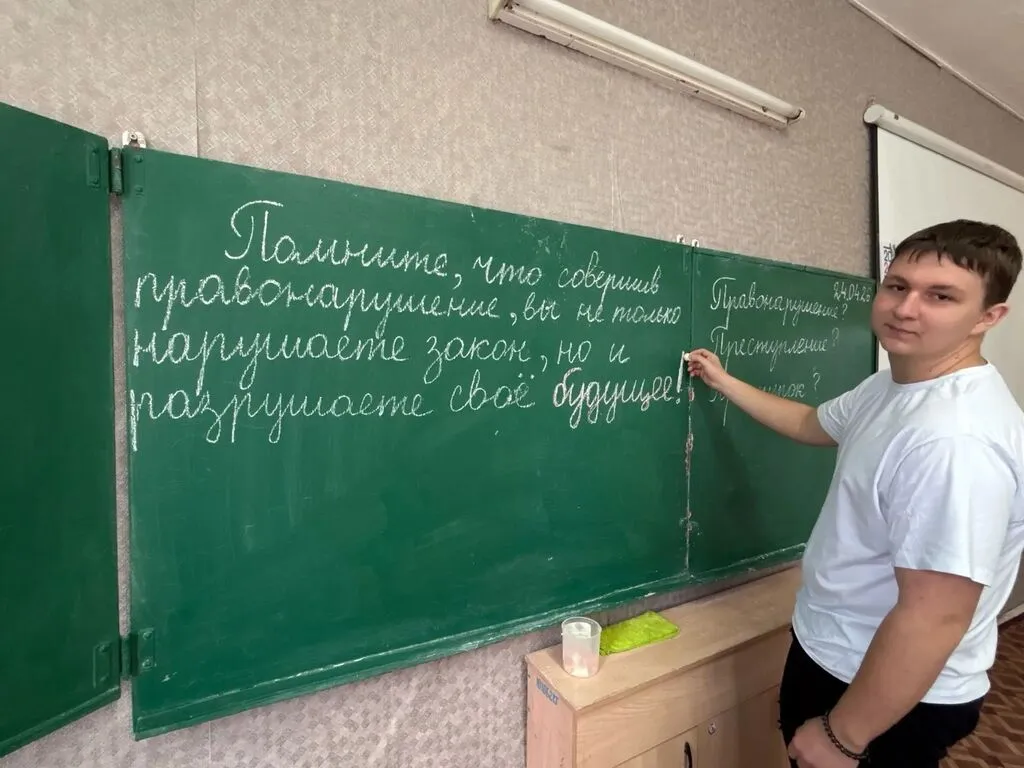 Помните, что совершив
правонарушение, вы не только
нарушаете закон, но и
разрушаете своё будущее!
24.04.25
Правонарушение?
Преступление?